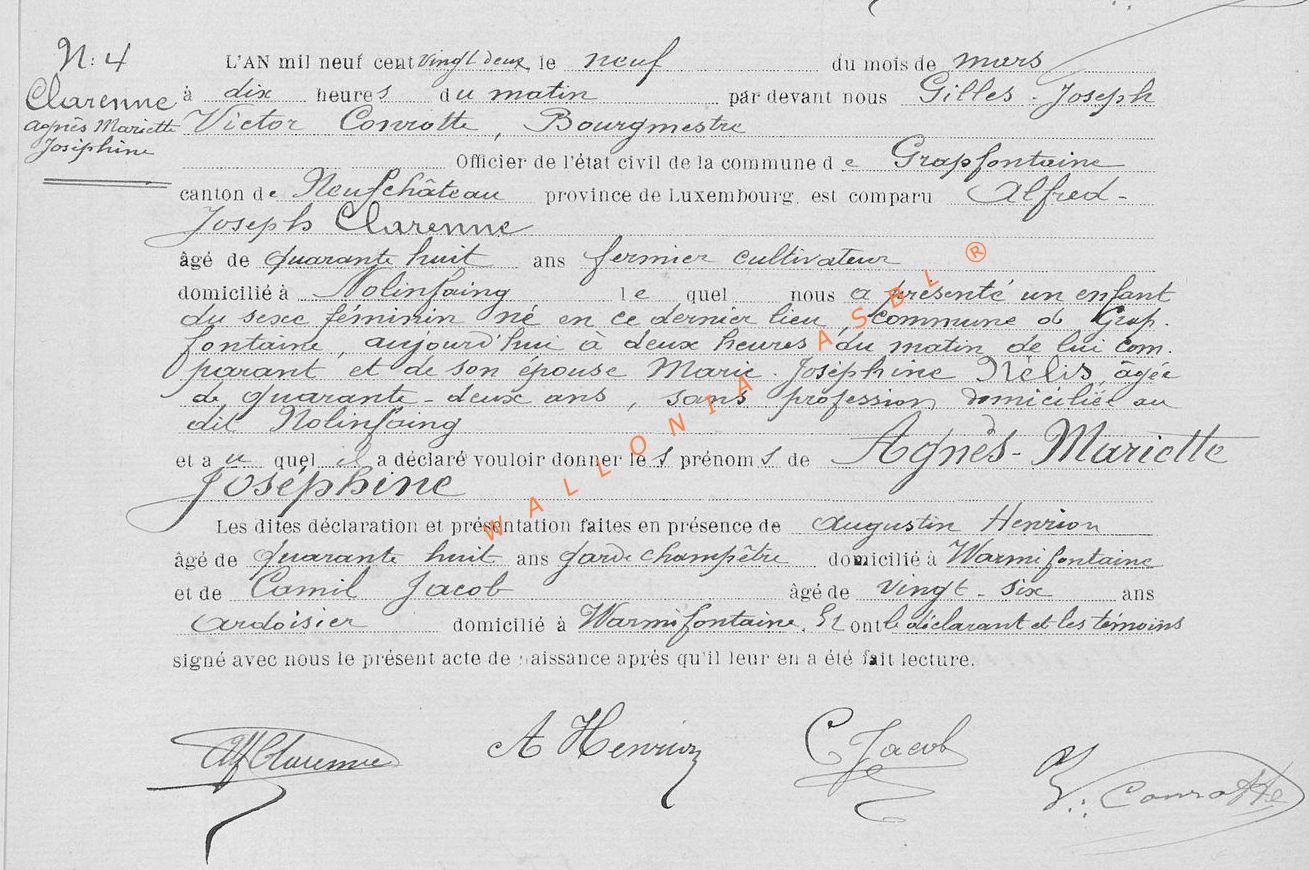 N: 4
Clarenne
Agnès Mariette
Joséphine
L'AN mil neuf cent vingt deux, le neuf du mois de mars
à dix heures du matin par devant nous Gilles-Joseph
Victor Conrotte, Bourgmestre
Officier de l'état civil de la commune de Grapfontaine
canton de Neufchâteau province de Luxembourg, est comparu Alfred-
Joseph Clarenne
âgé de quarante huit ans fermier cultivateur
domicilié à Nolinfaing le quel nous a présenté un enfant
du sexe féminin né en ce dernier lieu, commune de Grap-
fontaine, aujourd'hui à deux heures du matin de lui com-
parant et de son épouse Marie-Joséphine Nélis, âgée
de quarante-deux ans, sans profession domiciliée au
dit Nolinfaing
et au quel il a déclaré vouloir donner les prénoms de Agnès-Mariette
Joséphine
Les dites déclaration et présentation faites en présence de Augustin Henrion
âgé de quarante huit ans garde champêtre domicilié à Warmifontaine
et de Camil Jacob âgé de vingt-six ans
ardoisier domicilié à Warmifontaine. Et ont le déclarant et les témoins
signé avec nous le présent acte de naissance après qu'il leur en a été fait lecture.
Alf Clarenne A Henrion C Jacob V: Conrotte
WALLONIA ASBL ®